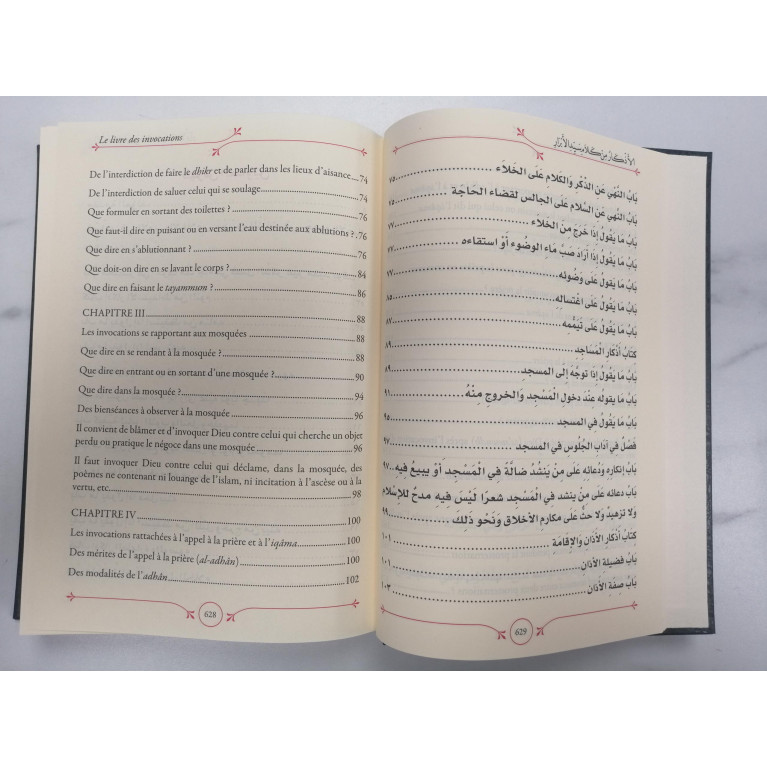 Le livre des invocations
De l'interdiction de faire le dhikr et de parler dans les lieux d'aisance...74
De l'interdiction de saluer celui qui se soulage...74
Que formuler en sortant des toilettes ?...76
Que faut-il dire en puisant ou en versant l'eau destinée aux ablutions ?.76
Que dire en s'ablutionnant ?...76
Que doit-on dire en se lavant le corps ?...84
Que dire en faisant le tayammum ?...86
CHAPITRE III...88
Les invocations se rapportant aux mosquées...88
Que dire en se rendant à la mosquée ?...88
Que dire en entrant ou en sortant d'une mosquée ?...90
Que dire dans la mosquée ?...94
Des bienséances à observer à la mosquée...96
Il convient de blâmer et d'invoquer Dieu contre celui qui cherche un objet
perdu ou pratique le négoce dans une mosquée...96
Il faut invoquer Dieu contre celui qui déclame, dans la mosquée, des
poèmes ne contenant ni louange de l'islam, ni incitation à l'ascèse ou à la
vertu, etc...98
CHAPITRE IV...100
Les invocations rattachées à l'appel à la prière et à l'iqâma...100
Des mérites de l'appel à la prière (al-adhân)...100
Des modalités de l'adhân...102
628
الأذكار من كلام سيد الأبرار
بَابُ النَّهْيِ عَنِ الذِّكْرِ وَالكَلَامِ عَلَى الخَلَاءِ...٧٥
بَابُ النَّهْيِ عَنِ السَّلَامِ عَلَى الجالسِ لقضاء الحَاجَة...٧٥
بَابُ مَا يَقُولُ إذَا خَرَجَ مِنَ الخَلَاءِ...٧٧
بَابُ مَا يَقُولُ إذَا أَرَادَ صَبَّ مَاءِ الوضُوءِ أَوْ استقاءه...٧٧
بَابُ مَا يَقُولُ عَلَى وَضُوئه...٧٧
بَابُ مَا يَقُولُ عَلَى اغْتسَاله...٨٥
بَابُ مَا يَقُولُ عَلَى تَيَمُّمه...٨٧
كتَابُ أَذْكَارِ المَسَاجِدِ...٨٩
بَابُ مَا يَقُولُ إذَا تَوَجَّهَ إلَى المسجد...٨٩
بَابُ مَا يقوله عِنْدَ دخول المَسْجِدِ وَالخروجِ مِنْهُ...٩١
بَابُ مَا يَقُولُ في المسجد...٩٥
فَصْلٌ في آدَابِ الجُلُوسِ في المسجد...٩٧
بَابُ إنكاره ودُعائِه عَلَى مَنْ يَنْشُدُ ضَالَّةً فِي الْمَسْجِدِ أَوْ يبيعُ فِيهِ...٩٧
بَابُ دعائه عَلَى من ينشد في المَسْجدِ شعرًا لَيْسَ فِيهِ مدحٌ للإسْلَامِ
ولا تزهيدٌ وَلا حثٌّ على مكارِم الأخلاق وَنَحْوِ ذَلِكَ...٩٩
كتَابُ أذْكَارِ الأَذَانِ وَالإقامَةِ...١٠١
بَابُ فَضيلَةِ الأَذَانِ...١٠١
بَابُ صفَة الأَذَانِ...١٠٣
629